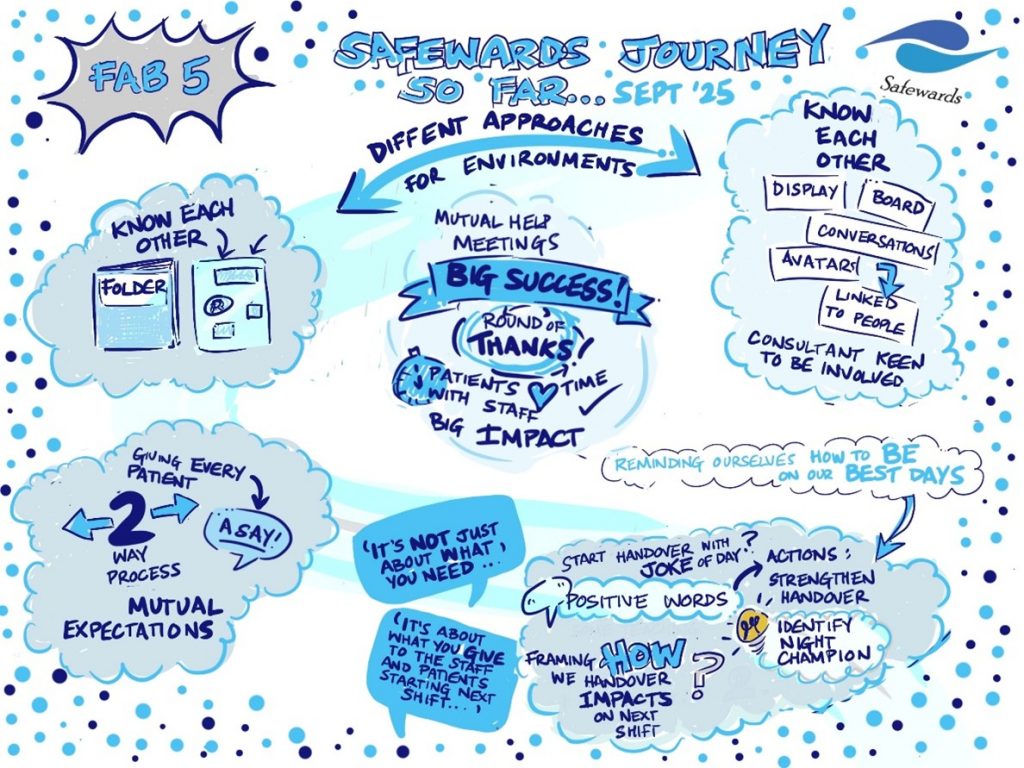 FAB 5
SAFEWARDS JOURNEY
SO FAR... SEPT '25
Safewards
DIFFENT APPROACHES
FOR ENVIRONMENTS
KNOW EACH
OTHER
FOLDER
MUTUAL HELP
MEETINGS
BIG SUCCESS!
ROUND OF
THANKS!
PATIENTS TIME
WITH STAFF
BIG IMPACT
KNOW
EACH
OTHER
DISPLAY
BOARD
CONVERSATIONS
AVATARS
LINKED
TO PEOPLE
CONSULTANT KEEN
TO BE INVOLVED
GIVING EVERY
PATIENT
A SAY!
2
WAY
PROCESS
MUTUAL
EXPECTATIONS
'IT'S NOT JUST
ABOUT WHAT
YOU NEED...'
'IT'S ABOUT
WHAT YOU GIVE
TO THE STAFF
AND PATIENTS
STARTING NEXT
SHIFT...'
REMINDING OURSELVES HOW TO BE
ON OUR BEST DAYS
START HANDOVER WITH
JOKE OF DAY?
POSITIVE WORDS
FRAMING HOW
WE HANDOVER
IMPACTS
ON NEXT
SHIFT
?
ACTIONS:
STRENGTHEN
HANDOVER
IDENTIFY
NIGHT
CHAMPION